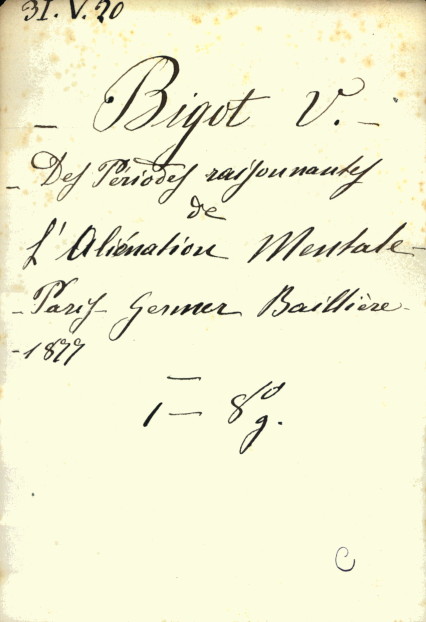 31. V. 20
- Bigot V. -
- Des Périodes raisonnantes
de
L'Aliénation Mentale -
- Paris - Germer Baillière -
- 1877
1 - 8º g.
C